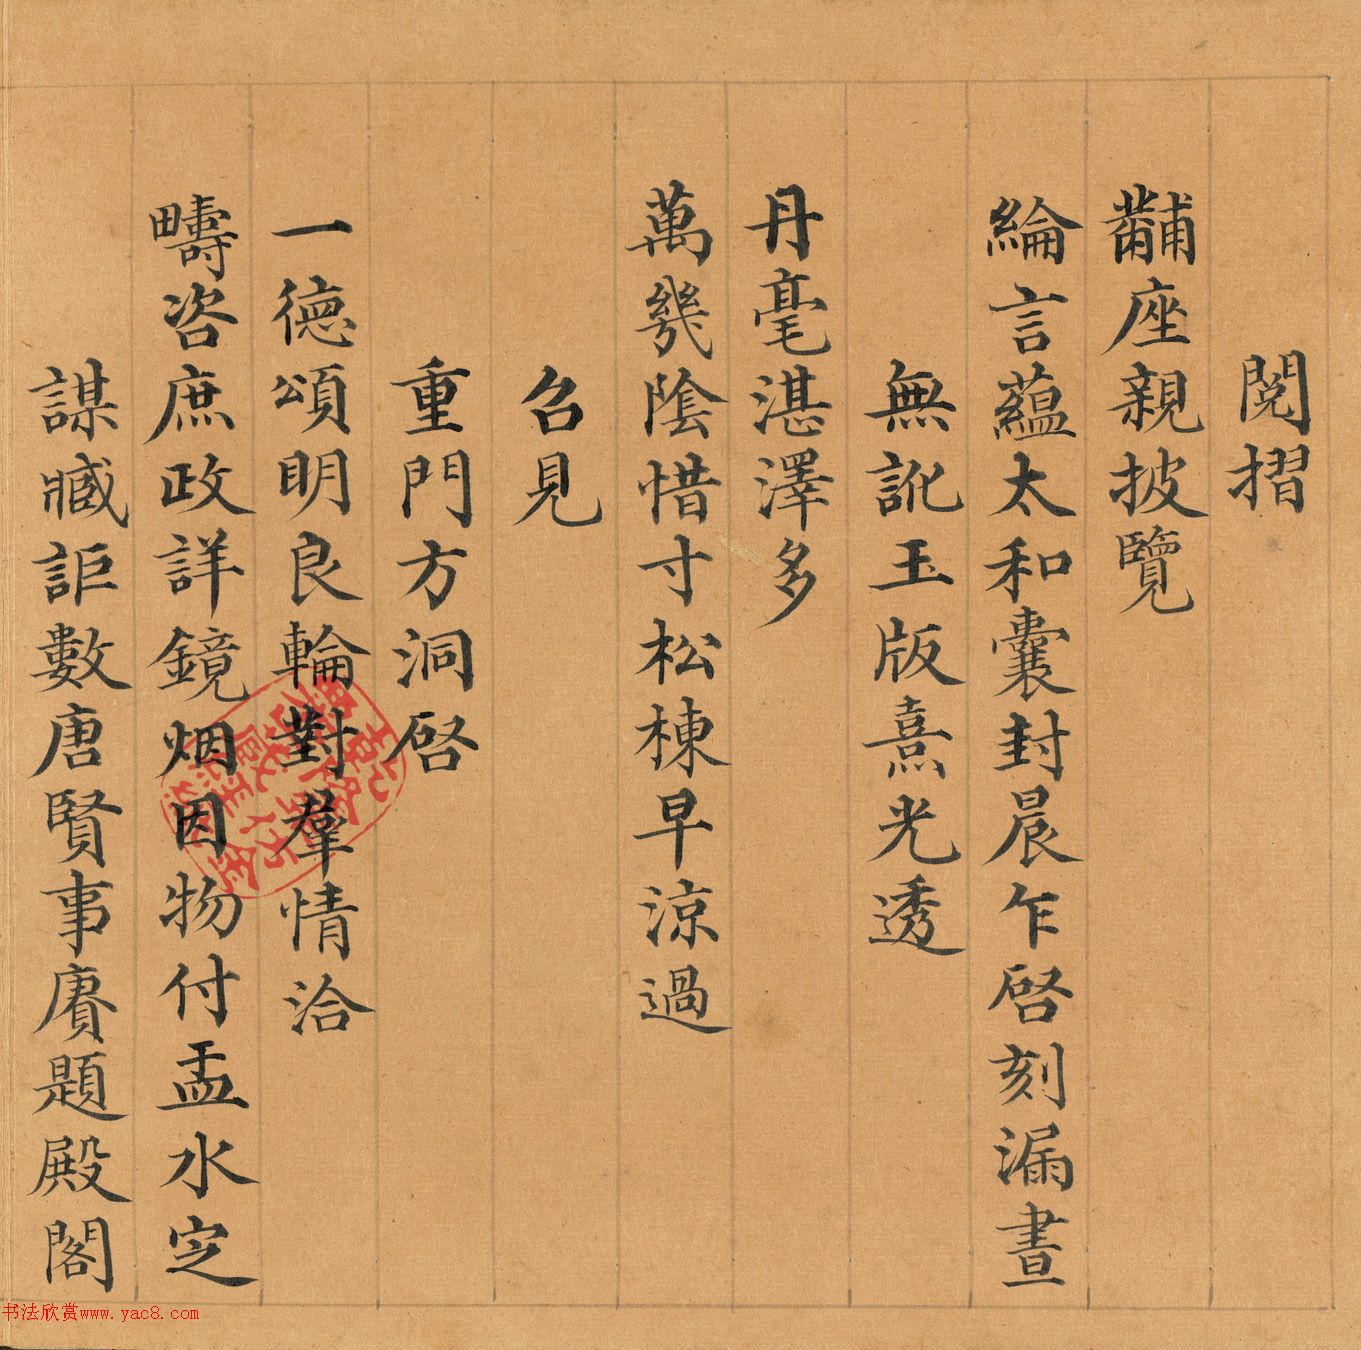 閱摺
黼座親披覽
綸言蘊太和囊封晨乍啓刻漏晝
無訛玉版熹光透
丹毫湛澤多
萬幾陰惜寸松棟早涼過
召見
重門方洞啓
一德頌明良輪對羣情洽
疇咨庶政詳鏡烟因物付盂水定
謀臧詎數唐賢事賡題殿閣
书法欣赏www.yac8.com